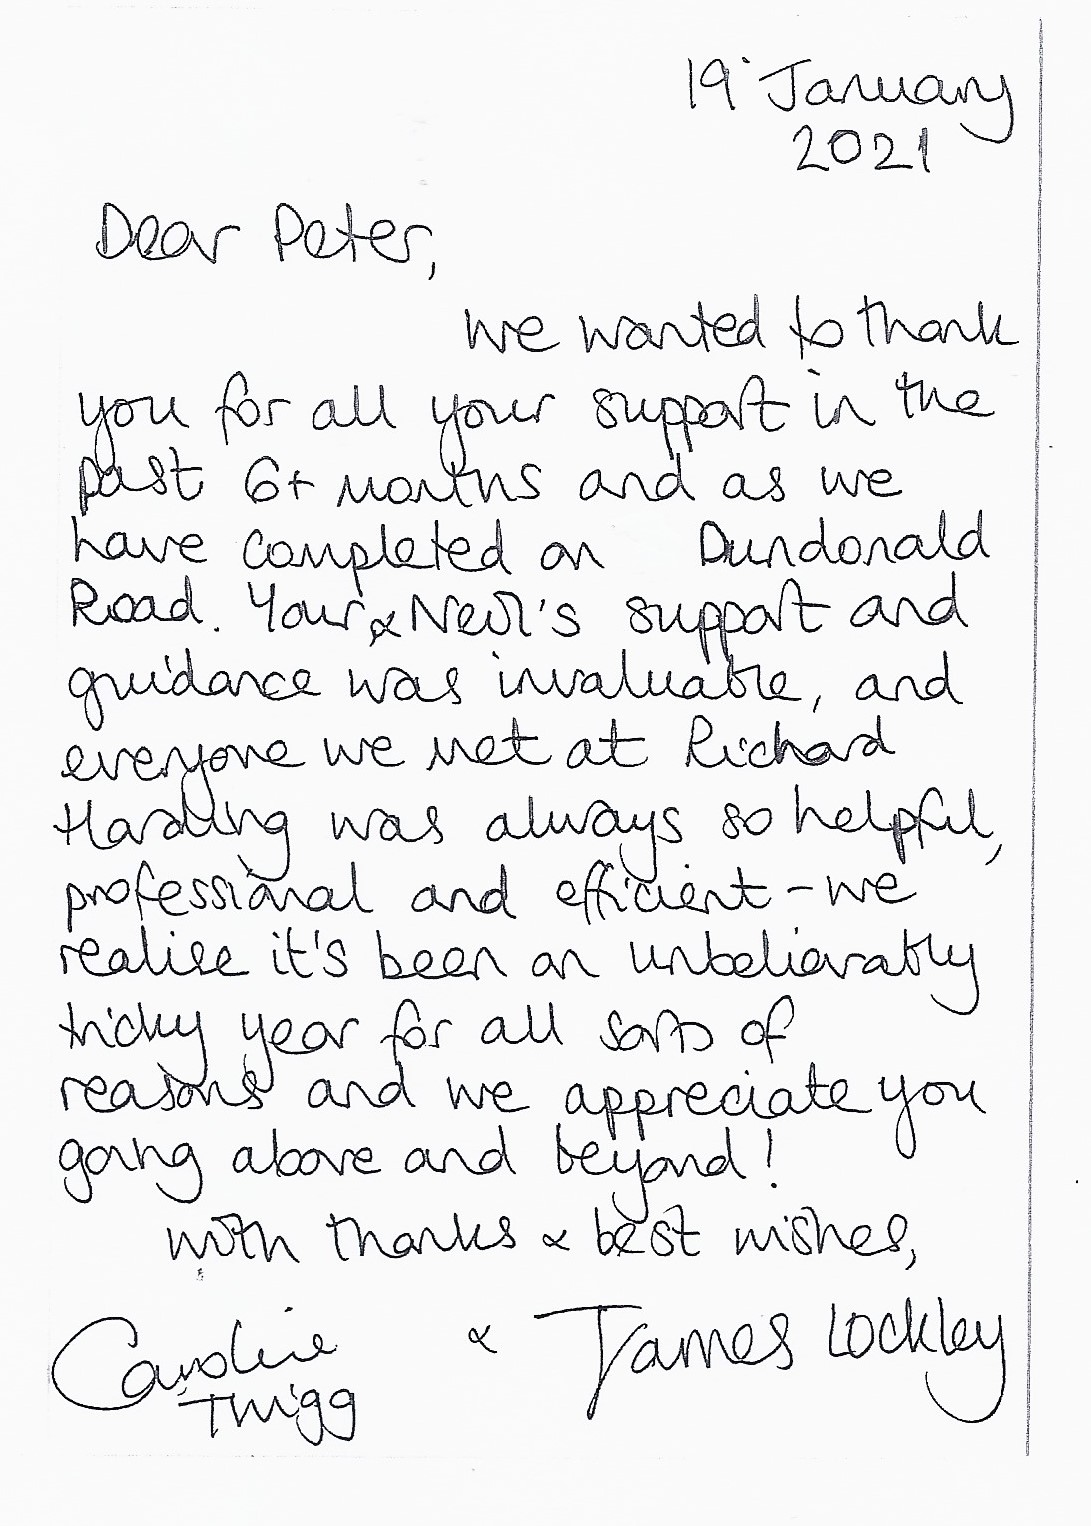 19 January
2021
Dear Peter,
We wanted to thank
you for all your support in the
past 6+ months and as we
have completed on Dundonald
Road. Your & Neil's support and
guidance was invaluable, and
everyone we met at Richard
Harding was always so helpful,
professional and efficient - we
realise it's been an unbelievably
tricky year for all sorts of
reasons and we appreciate you
going above and beyond!
With thanks & best wishes,
Caroline & James Lockley
Twigg